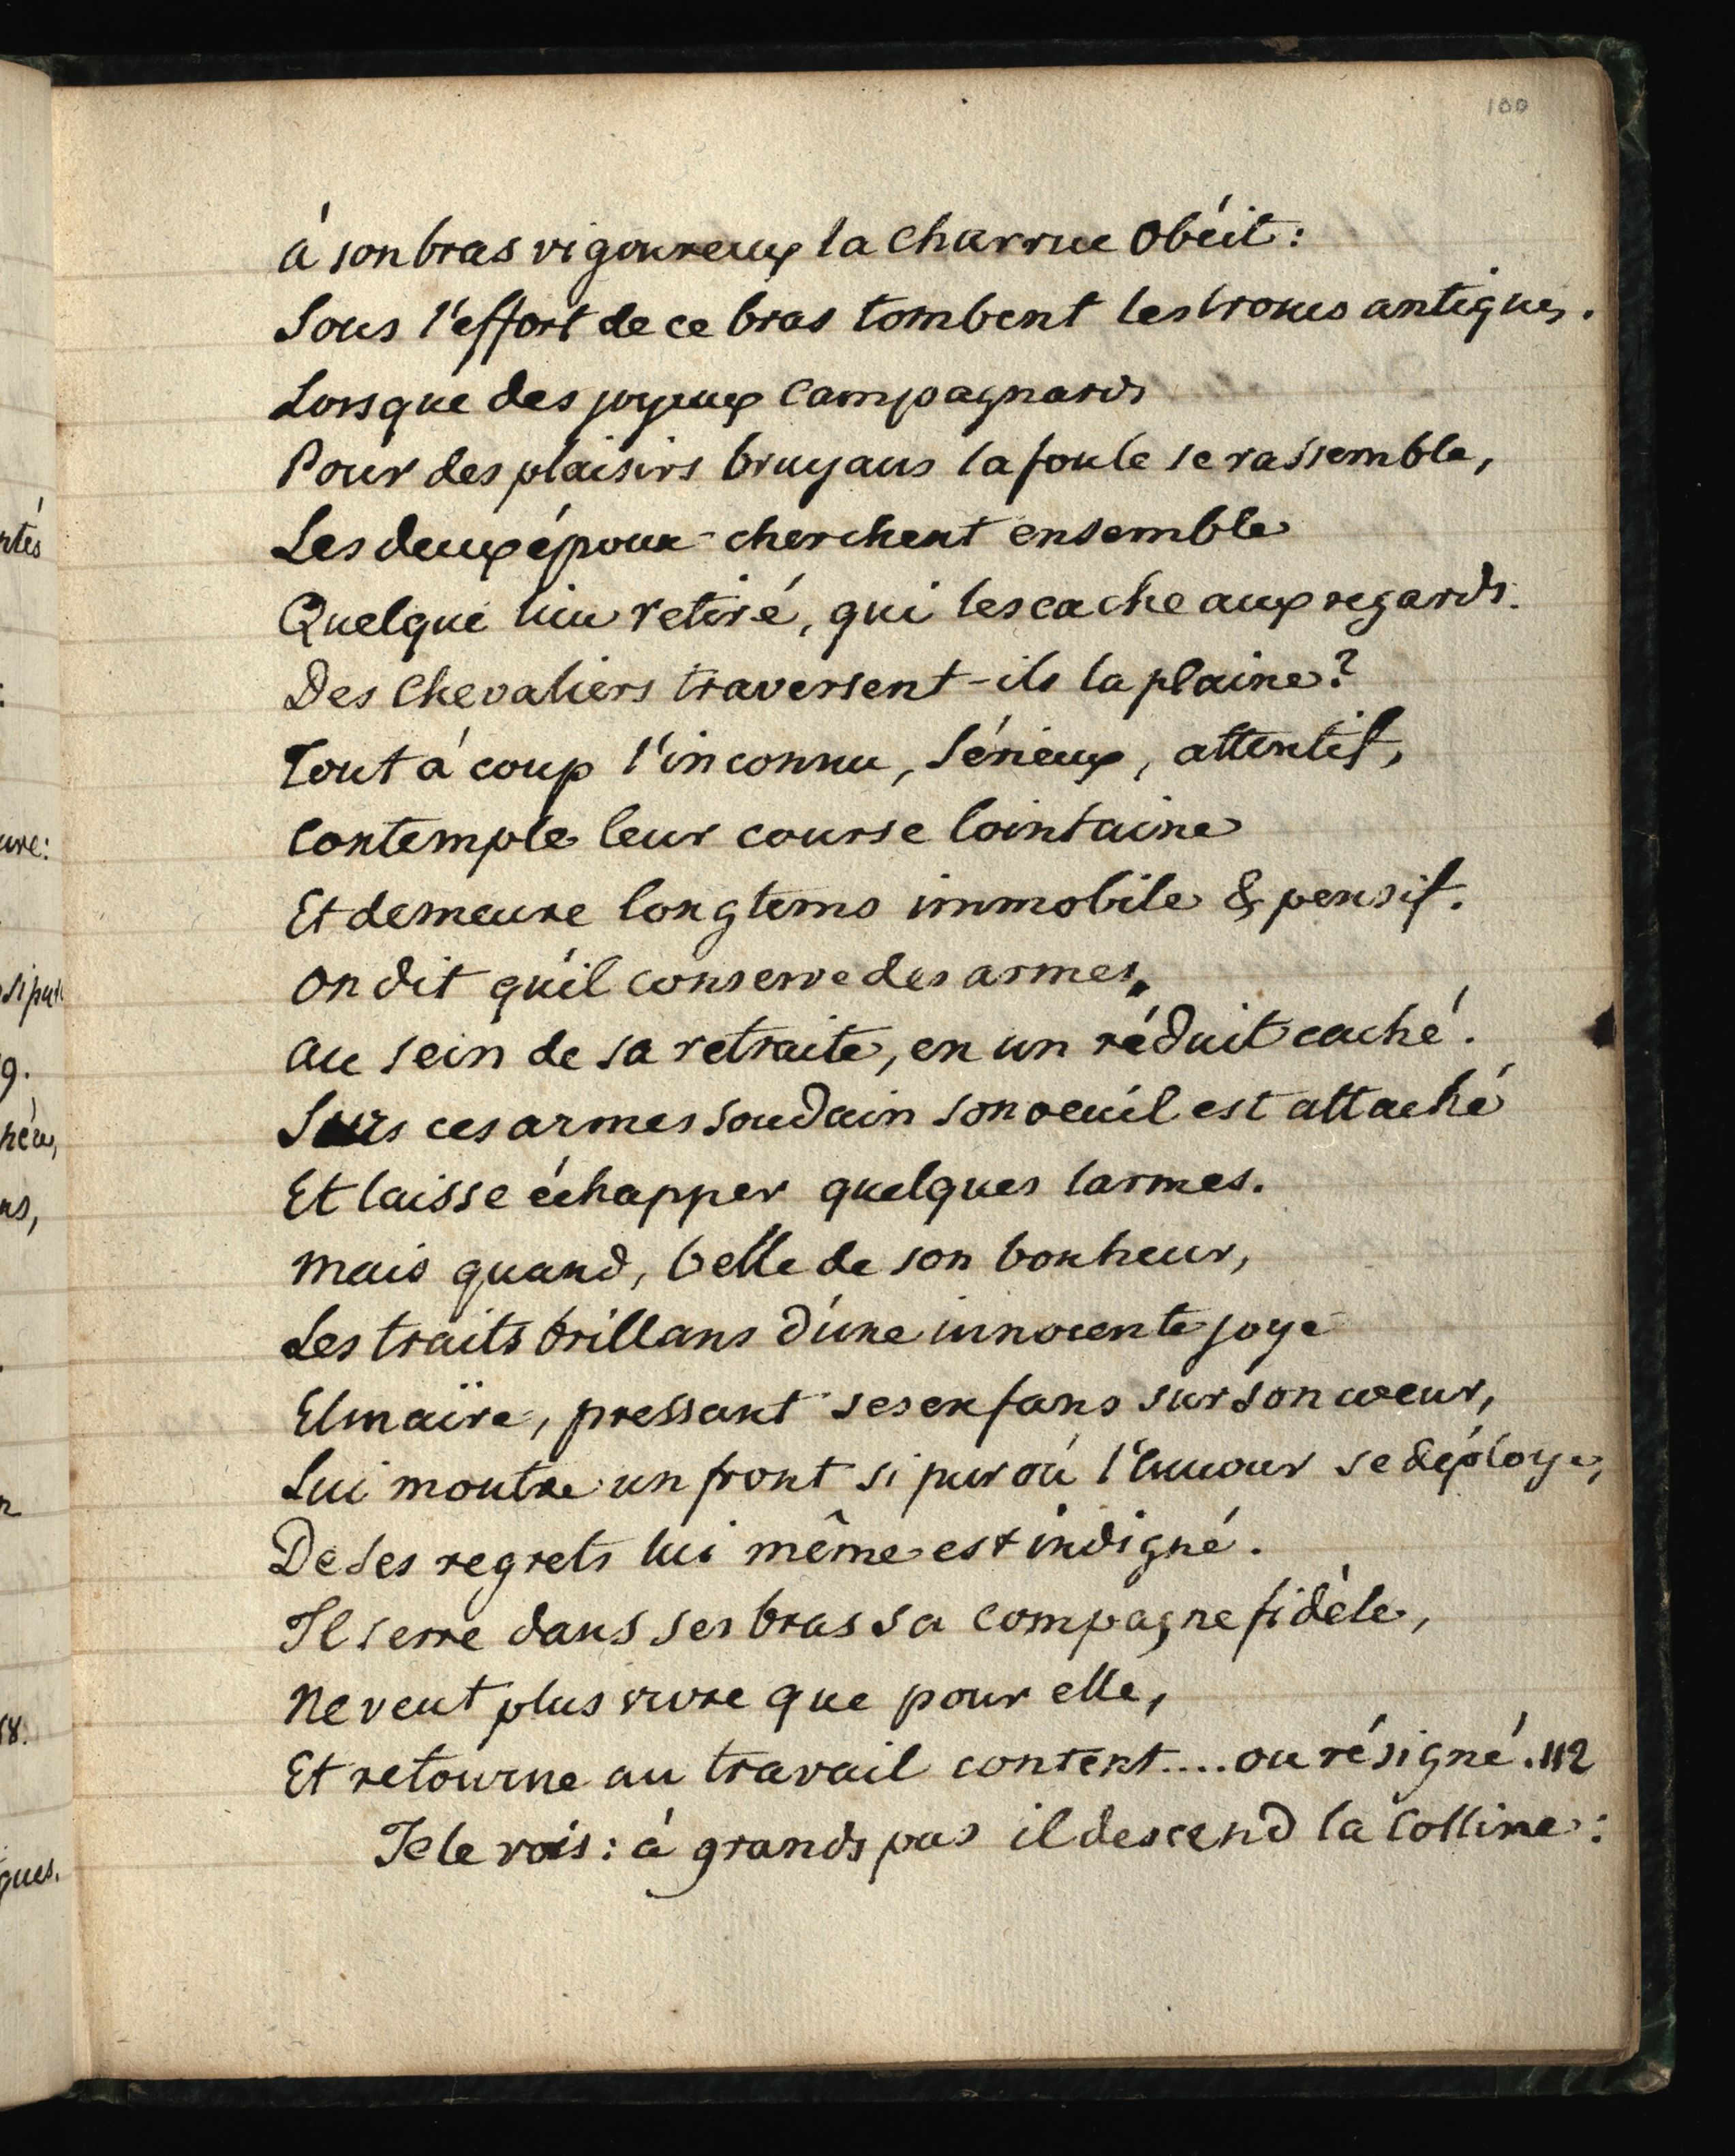 100
à son bras vigoureux la Charrue Obéit :
Sous l'effort de ce bras tombent les troncs antiques.
Lorsque des joyeux Campagnards
Pour des plaisirs bruyans la foule se rassemble,
Les deux époux cherchent ensemble
Quelque lieu retiré, qui les cache aux regards.
Des Chevaliers traversent-ils la plaine ?
Tout à coup l'inconnu, Sérieux, attentif,
Contemple leur course lointaine
Et demeure longtems immobile & pensif.
On dit qu'il conserve des armes,
au sein de sa retraite, en un réduit caché.
Sur ces armes soudain son oeuil est attaché
Et laisse échapper quelques larmes.
Mais quand, belle de son bonheur,
Les traits brillans d'une innocente joye
Elmaïre, pressant ses enfans sur son coeur,
Lui montre un front si pur où l'amour se déploye,
De ses regrets lui même est indigné.
Il serre dans ses bras sa compagne fidèle,
Ne veut plus vivre que pour elle,
Et retourne au travail content.... ou résigné. 112
Je le vois : à grands pas il descend la Colline :
ntés
ure:
si pur
9.
ns,
n
58.
ques.